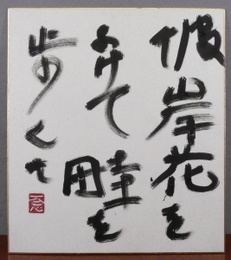 彼岸花を
よけて畦を
歩く